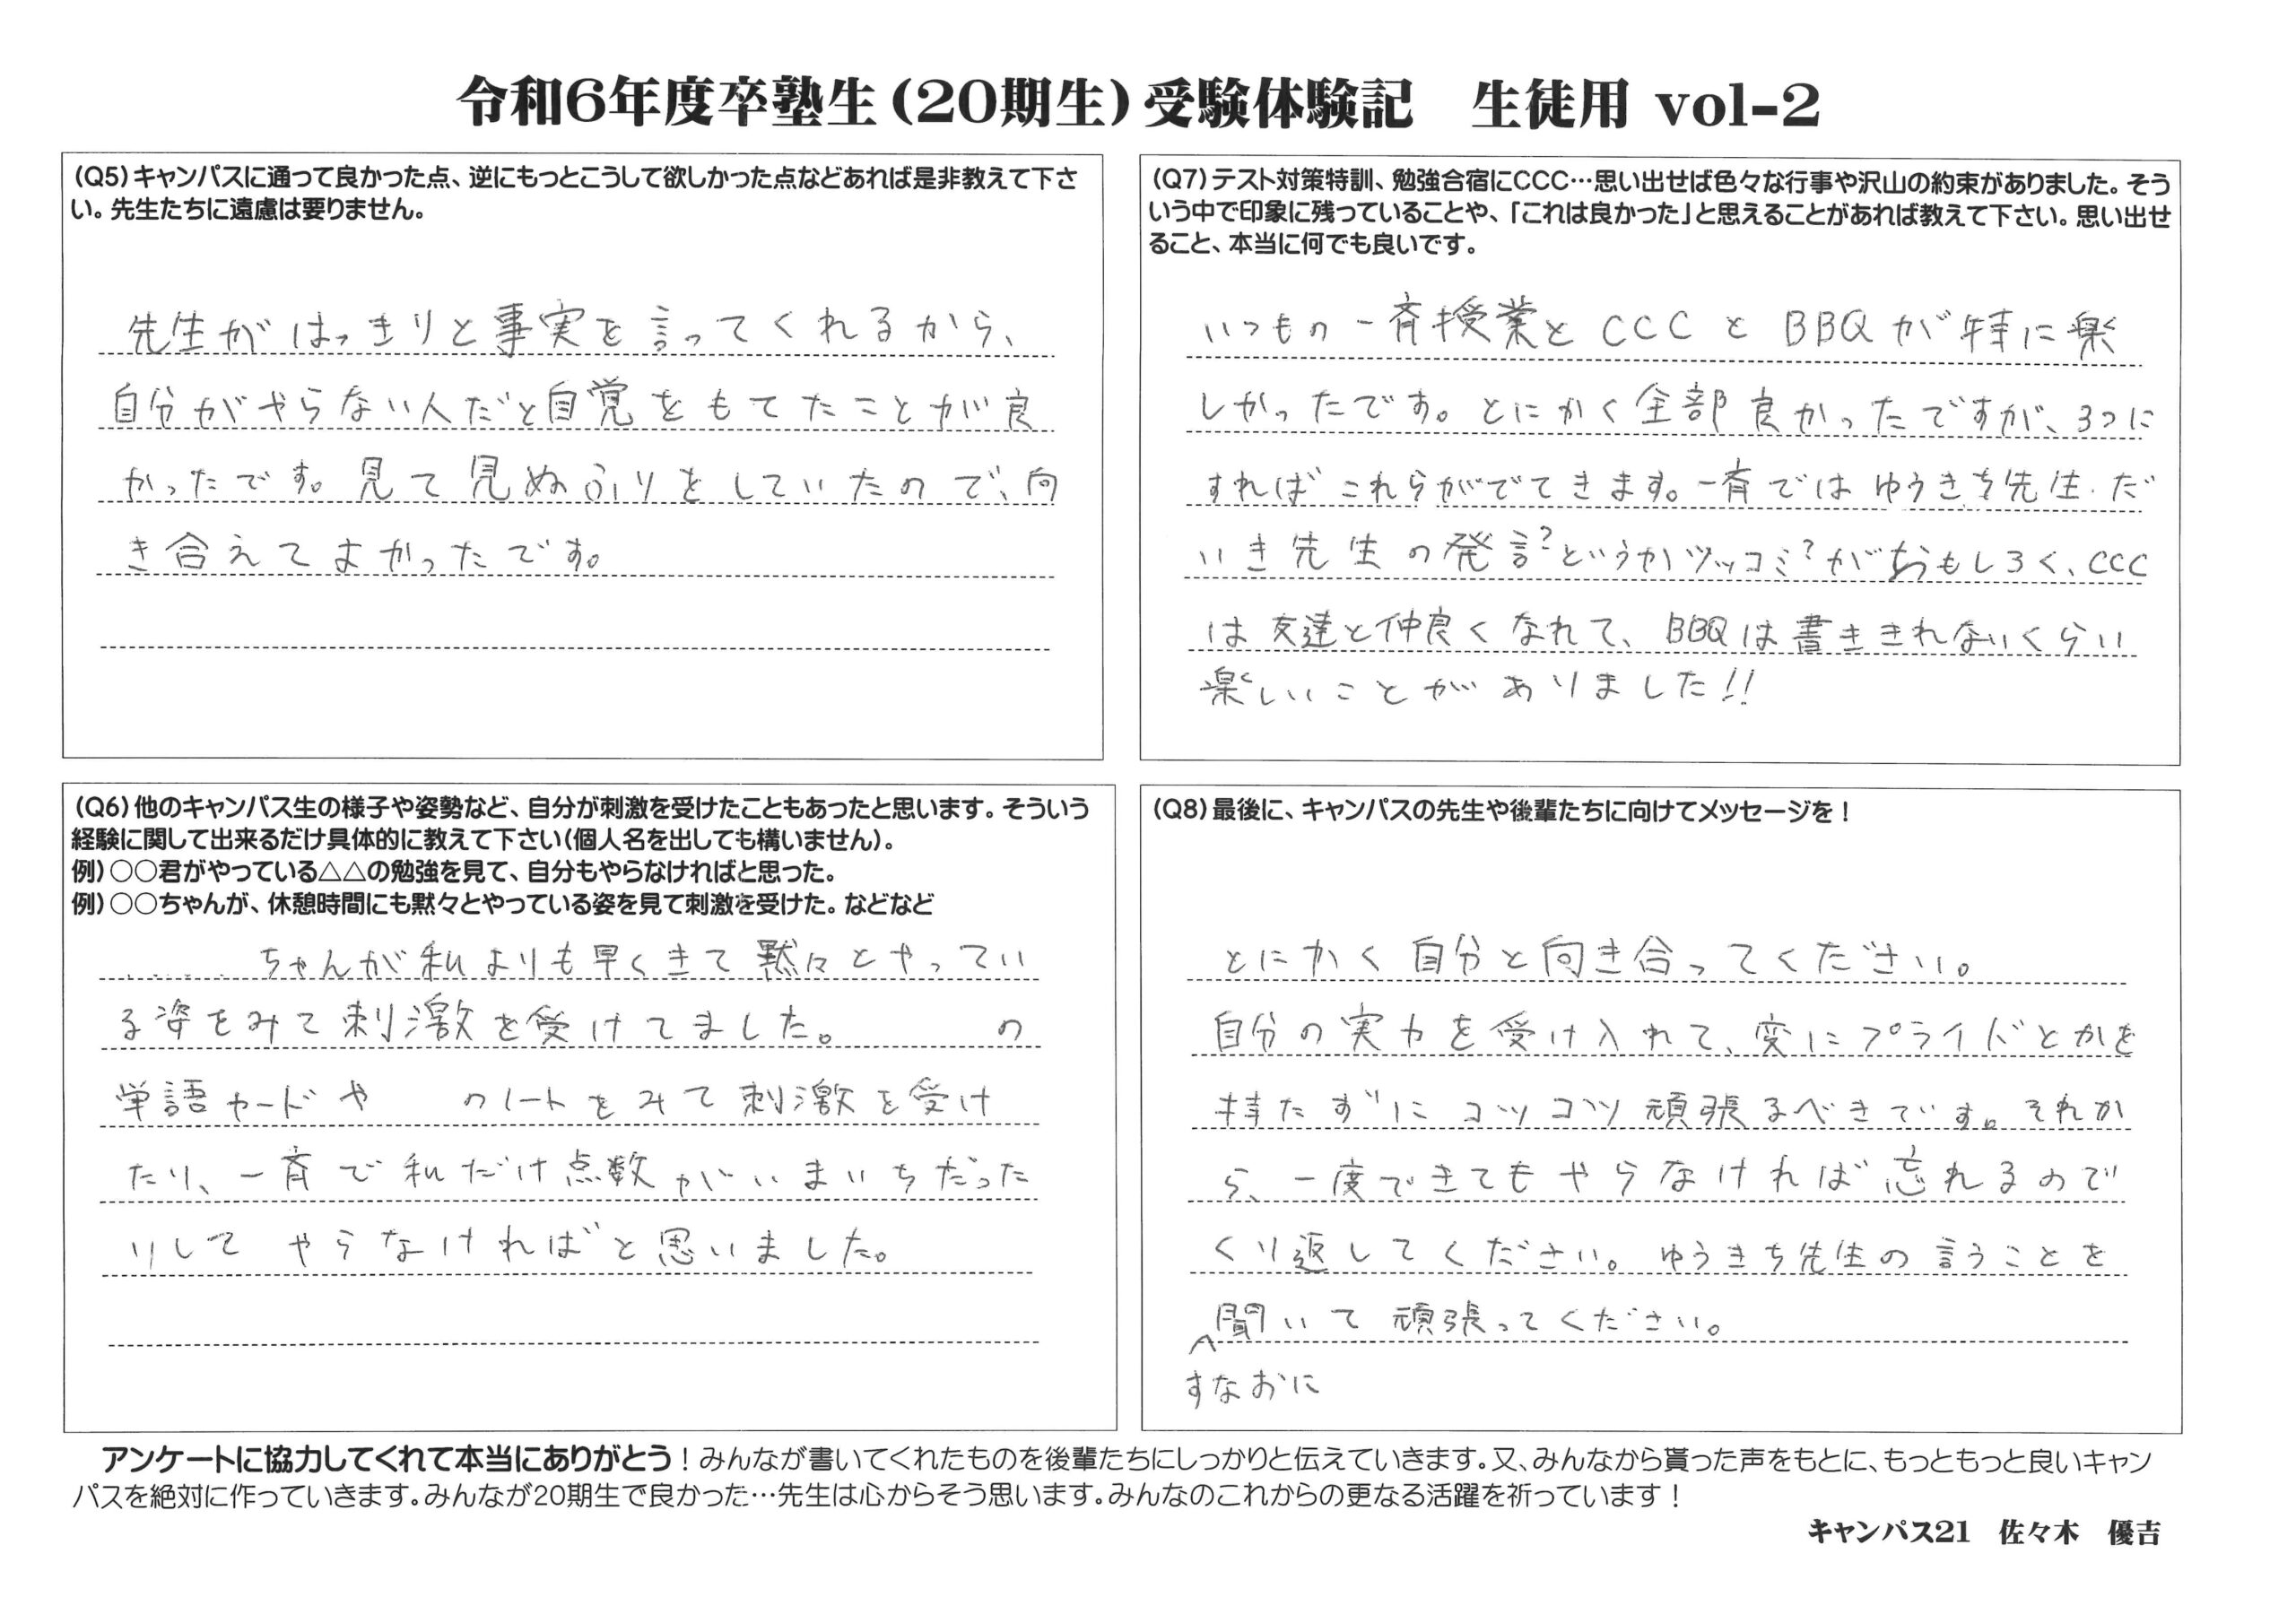 令和6年度卒塾生(20期生)受験体験記　生徒用 vol-2
(Q5)キャンパスに通って良かった点、逆にもっとこうして欲しかった点などあれば是非教えて下さ
い。先生たちに遠慮は要りません。
先生がはっきりと事実を言ってくれるから、
自分がやらない人だと自覚をもてたことが良
かったです。見て見ぬふりをしていたので、向
き合えてよかったです。
(Q6)他のキャンパス生の様子や姿勢など、自分が刺激を受けたこともあったと思います。そういう
経験に関して出来るだけ具体的に教えて下さい(個人名を出しても構いません)。
例)○○君がやっている△△の勉強を見て、自分もやらなければと思った。
例)○○ちゃんが、休憩時間にも黙々とやっている姿を見て刺激を受けた。などなど
ちゃんが私よりも早くきて黙々とやってい
る姿をみて刺激を受けてました。　の
単語カードや　のノートをみて刺激を受け
たり、一斉で私だけ点数がいまいちだった
りしてやらなければと思いました。
(Q7)テスト対策特訓、勉強合宿にCCC…思い出せば色々な行事や沢山の約束がありました。そう
いう中で印象に残っていることや、「これは良かった」と思えることがあれば教えて下さい。思い出せ
ること、本当に何でも良いです。
いつもの一斉授業とCCCとBBQが特に楽
しかったです。とにかく全部良かったですが、3つに
すればこれらがでてきます。一斉ではゆうきち先生・だ
いき先生の発言?というかツッコミ?がおもしろく、CCC
は友達と仲良くなれて、BBQは書ききれないくらい
楽しいことがありました!!
(Q8)最後に、キャンパスの先生や後輩たちに向けてメッセージを!
とにかく自分と向き合ってください。
自分の実力を受け入れて、変にプライドとかを
持たずにコツコツ頑張るべきです。それか
ら、一度できてもやらなければ忘れるので
くり返してください。ゆうきち先生の言うことを
聞いて頑張ってください。
すなおに
アンケートに協力してくれて本当にありがとう!みんなが書いてくれたものを後輩たちにしっかりと伝えていきます。又、みんなから貰った声をもとに、もっともっと良いキャン
パスを絶対に作っていきます。みんなが20期生で良かった…先生は心からそう思います。みんなのこれからの更なる活躍を祈っています!
キャンパス21　佐々木　優吉